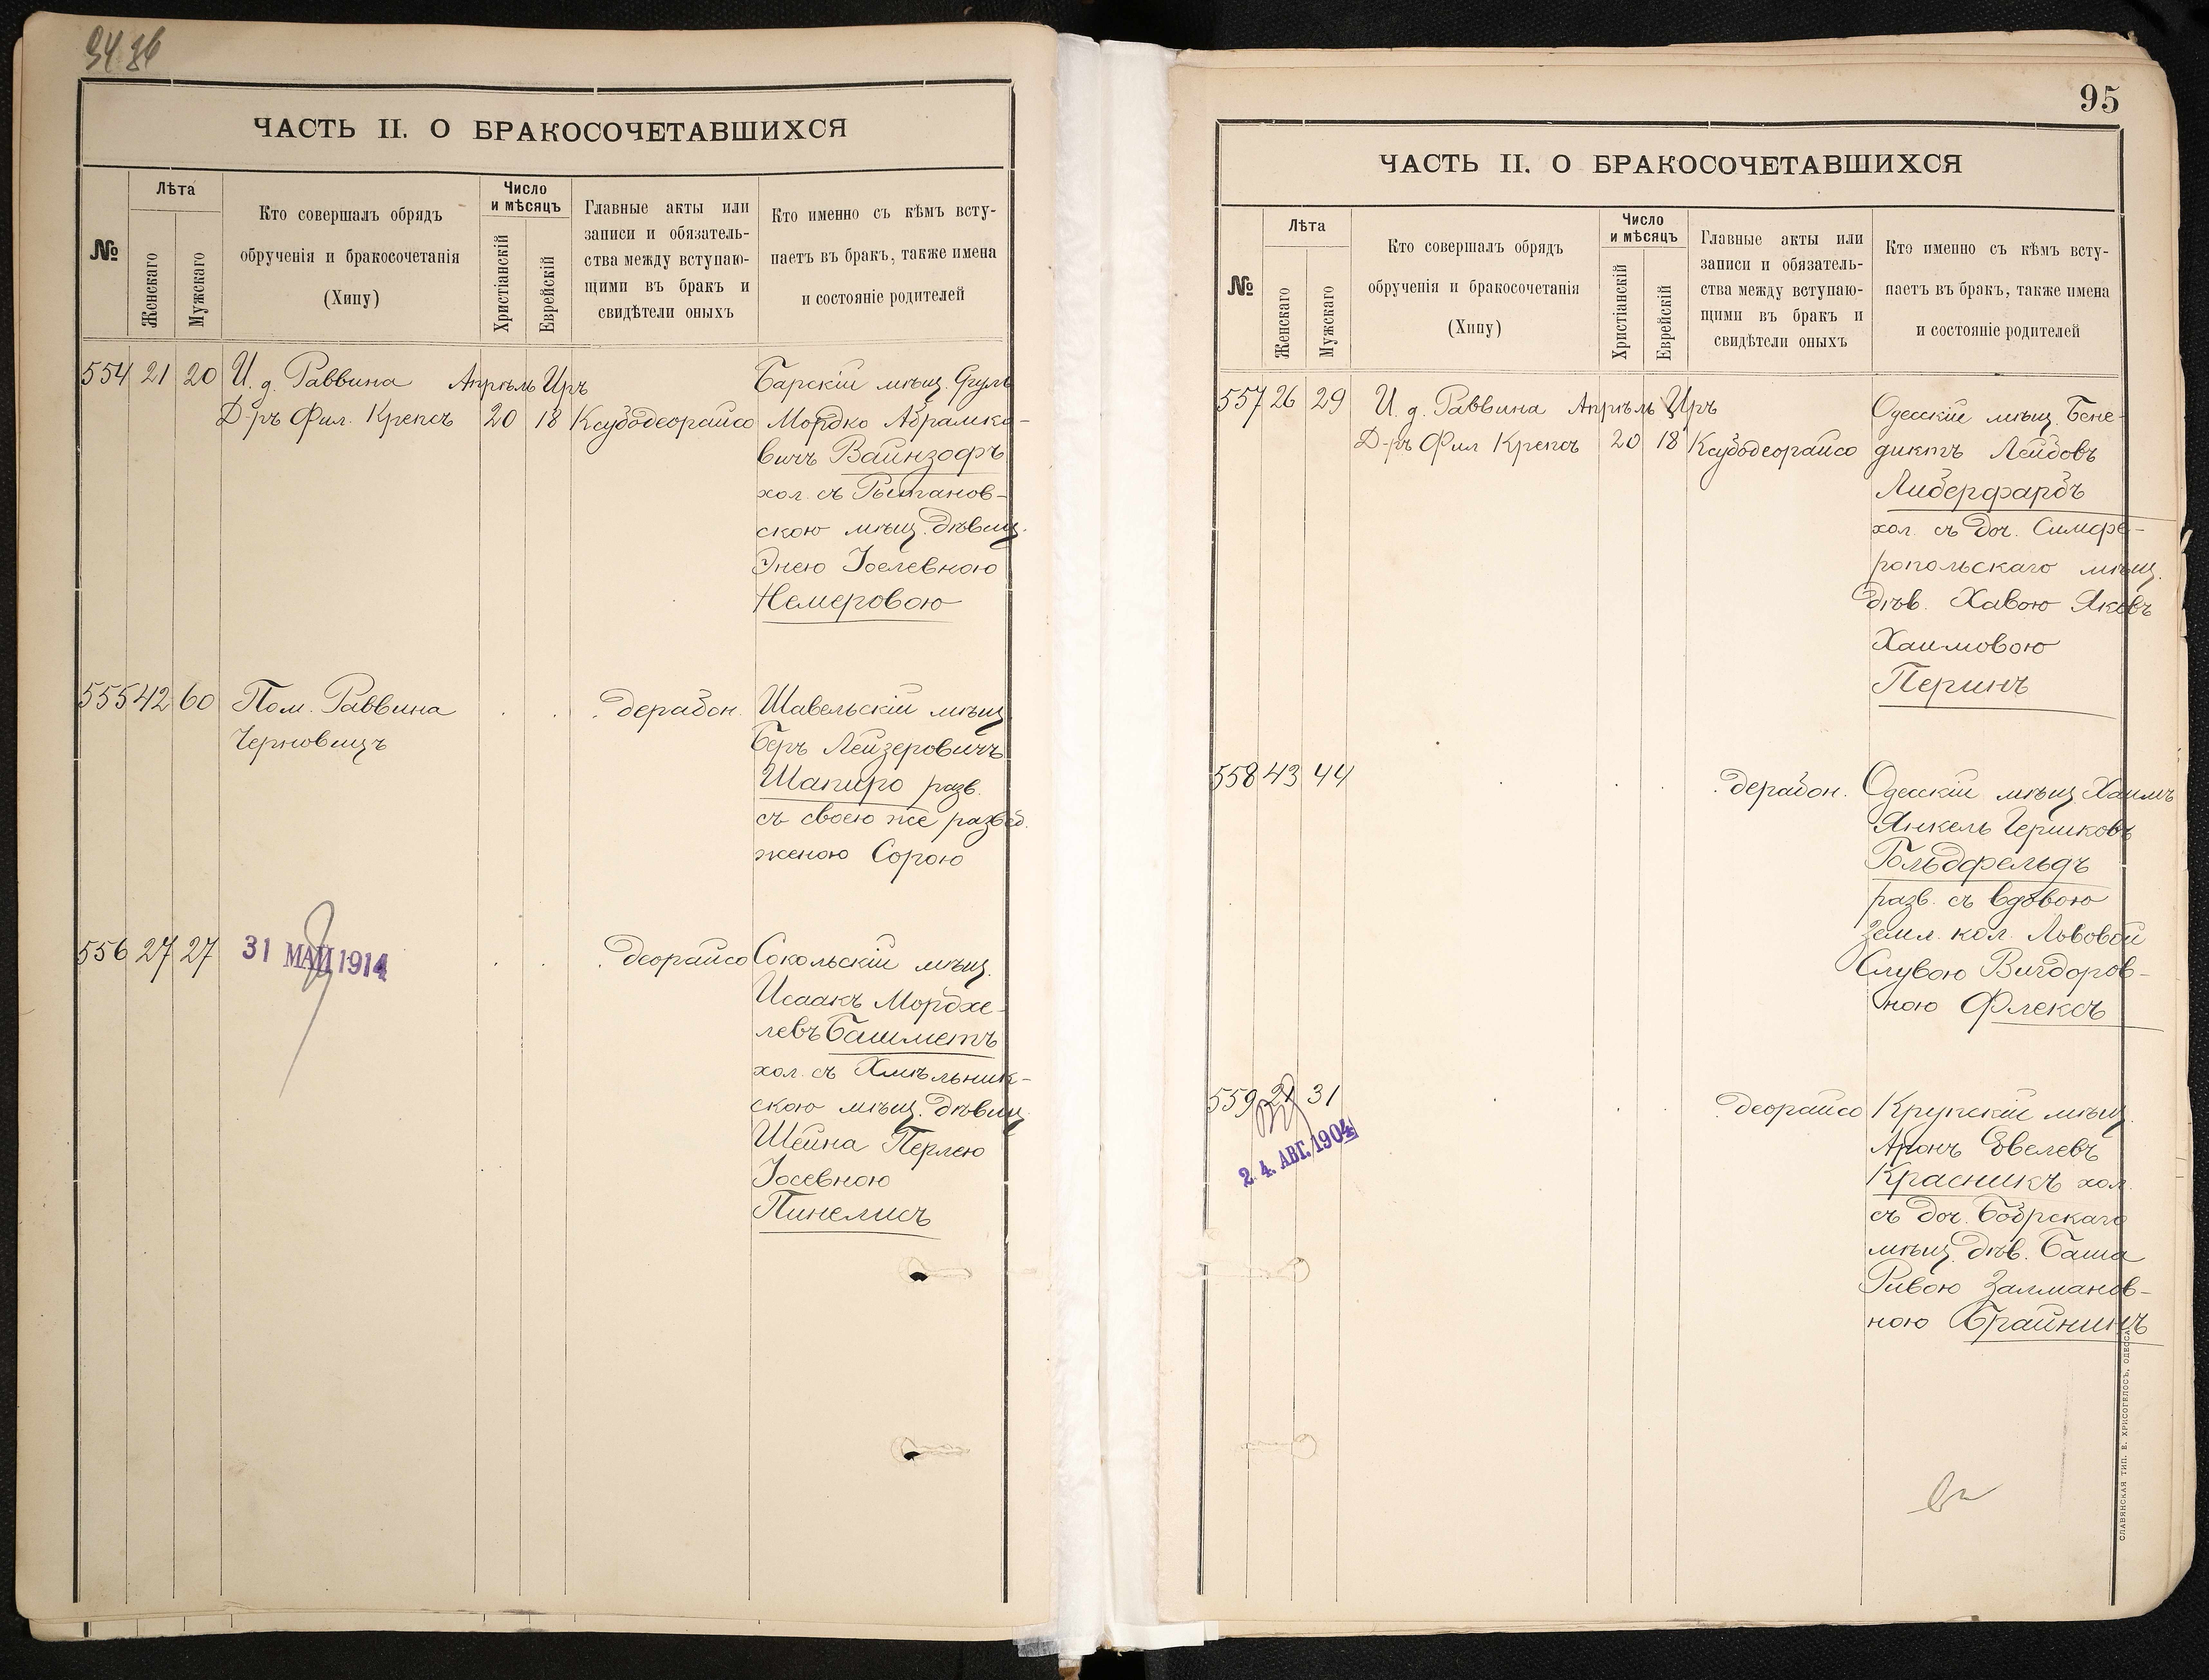 ЧАСТЬ II. О БРАКОСОЧЕТАВШИХСЯ
№
Лѣта
Женскаго
Мужскаго
Кто совершалъ обрядъ
обрученія и бракосочетанія
(Хипу)
Число
и мѣсяцъ
Христіанскій
Еврейскій
Главные акты или
записи и обязатель-
ства между вступаю-
щими въ бракъ и
свидѣтели оныхъ
Кто именно съ кѣмъ всту-
паетъ въ бракъ, также имена
и состояніе родителей
554 21 20 И. д. Раввина Апрѣль Иръ Барскій мѣщ. Сруль
Д-ръ Фил. Крепсъ 20 18 Ксубодеорайсо Мордко Абрамко-
вичъ Вайнзофъ
хол. съ
скою мѣщ. дѣвиц.
Энею Іоселевною
Немеровою
555 42 60 Пом. Раввина . . . дерабон. Шавельскій мѣщ.
Черновицъ Беръ Лейзеровичъ
Шапиро разв.
съ своею же развед.
женою Сорою
556 27 27 31 МАЙ 1914 . . . деорайсо Сокольскій мѣщ.
Исаакъ Мордхе-
левъ Башметъ
хол. съ Хмѣльник-
скою мѣщ. дѣвиц.
Шейна Перлею
Іосевною
Пинелисъ
95
ЧАСТЬ II. О БРАКОСОЧЕТАВШИХСЯ
№
Лѣта
Женскаго
Мужскаго
Кто совершалъ обрядъ
обрученія и бракосочетанія
(Хипу)
Число
и мѣсяцъ
Христіанскій
Еврейскій
Главные акты или
записи и обязатель-
ства между вступаю-
щими въ бракъ и
свидѣтели оныхъ
Кто именно съ кѣмъ всту-
паетъ въ бракъ, также имена
и состояніе родителей
557 26 29 И. д. Раввина Апрѣль Иръ Одесскій мѣщ. Бене-
Д-ръ Фил Крепсъ 20 18 Ксубодеорайсо диктъ Лейбовъ
Либерфарбъ
хол. съ доч. Симфе-
ропольскаго мѣщ.
дѣв. Хавою Яковъ
Хаимовою
Перинъ
558 43 44 . . . дерабон. Одесскій мѣщ. Хаимъ
Янкель Гершковъ
Гольдфельдъ
разв. съ вдовою
Земл. кол. Львовой
Слувою Вигдоров-
ною Флексъ
559 21 31 . . . деорайсо Крупскій мѣщ.
2. 4. АВГ. 1904
Аронъ Евелевъ
Красникъ хол.
съ доч. Бобрскаго
мѣщ. дѣв. Баша
Ривою Залманов-
ною Брайнинъ
СЛАВЯНСКАЯ ТИП. Е. ХРИСОГЕЛОСЪ, ОДЕССА